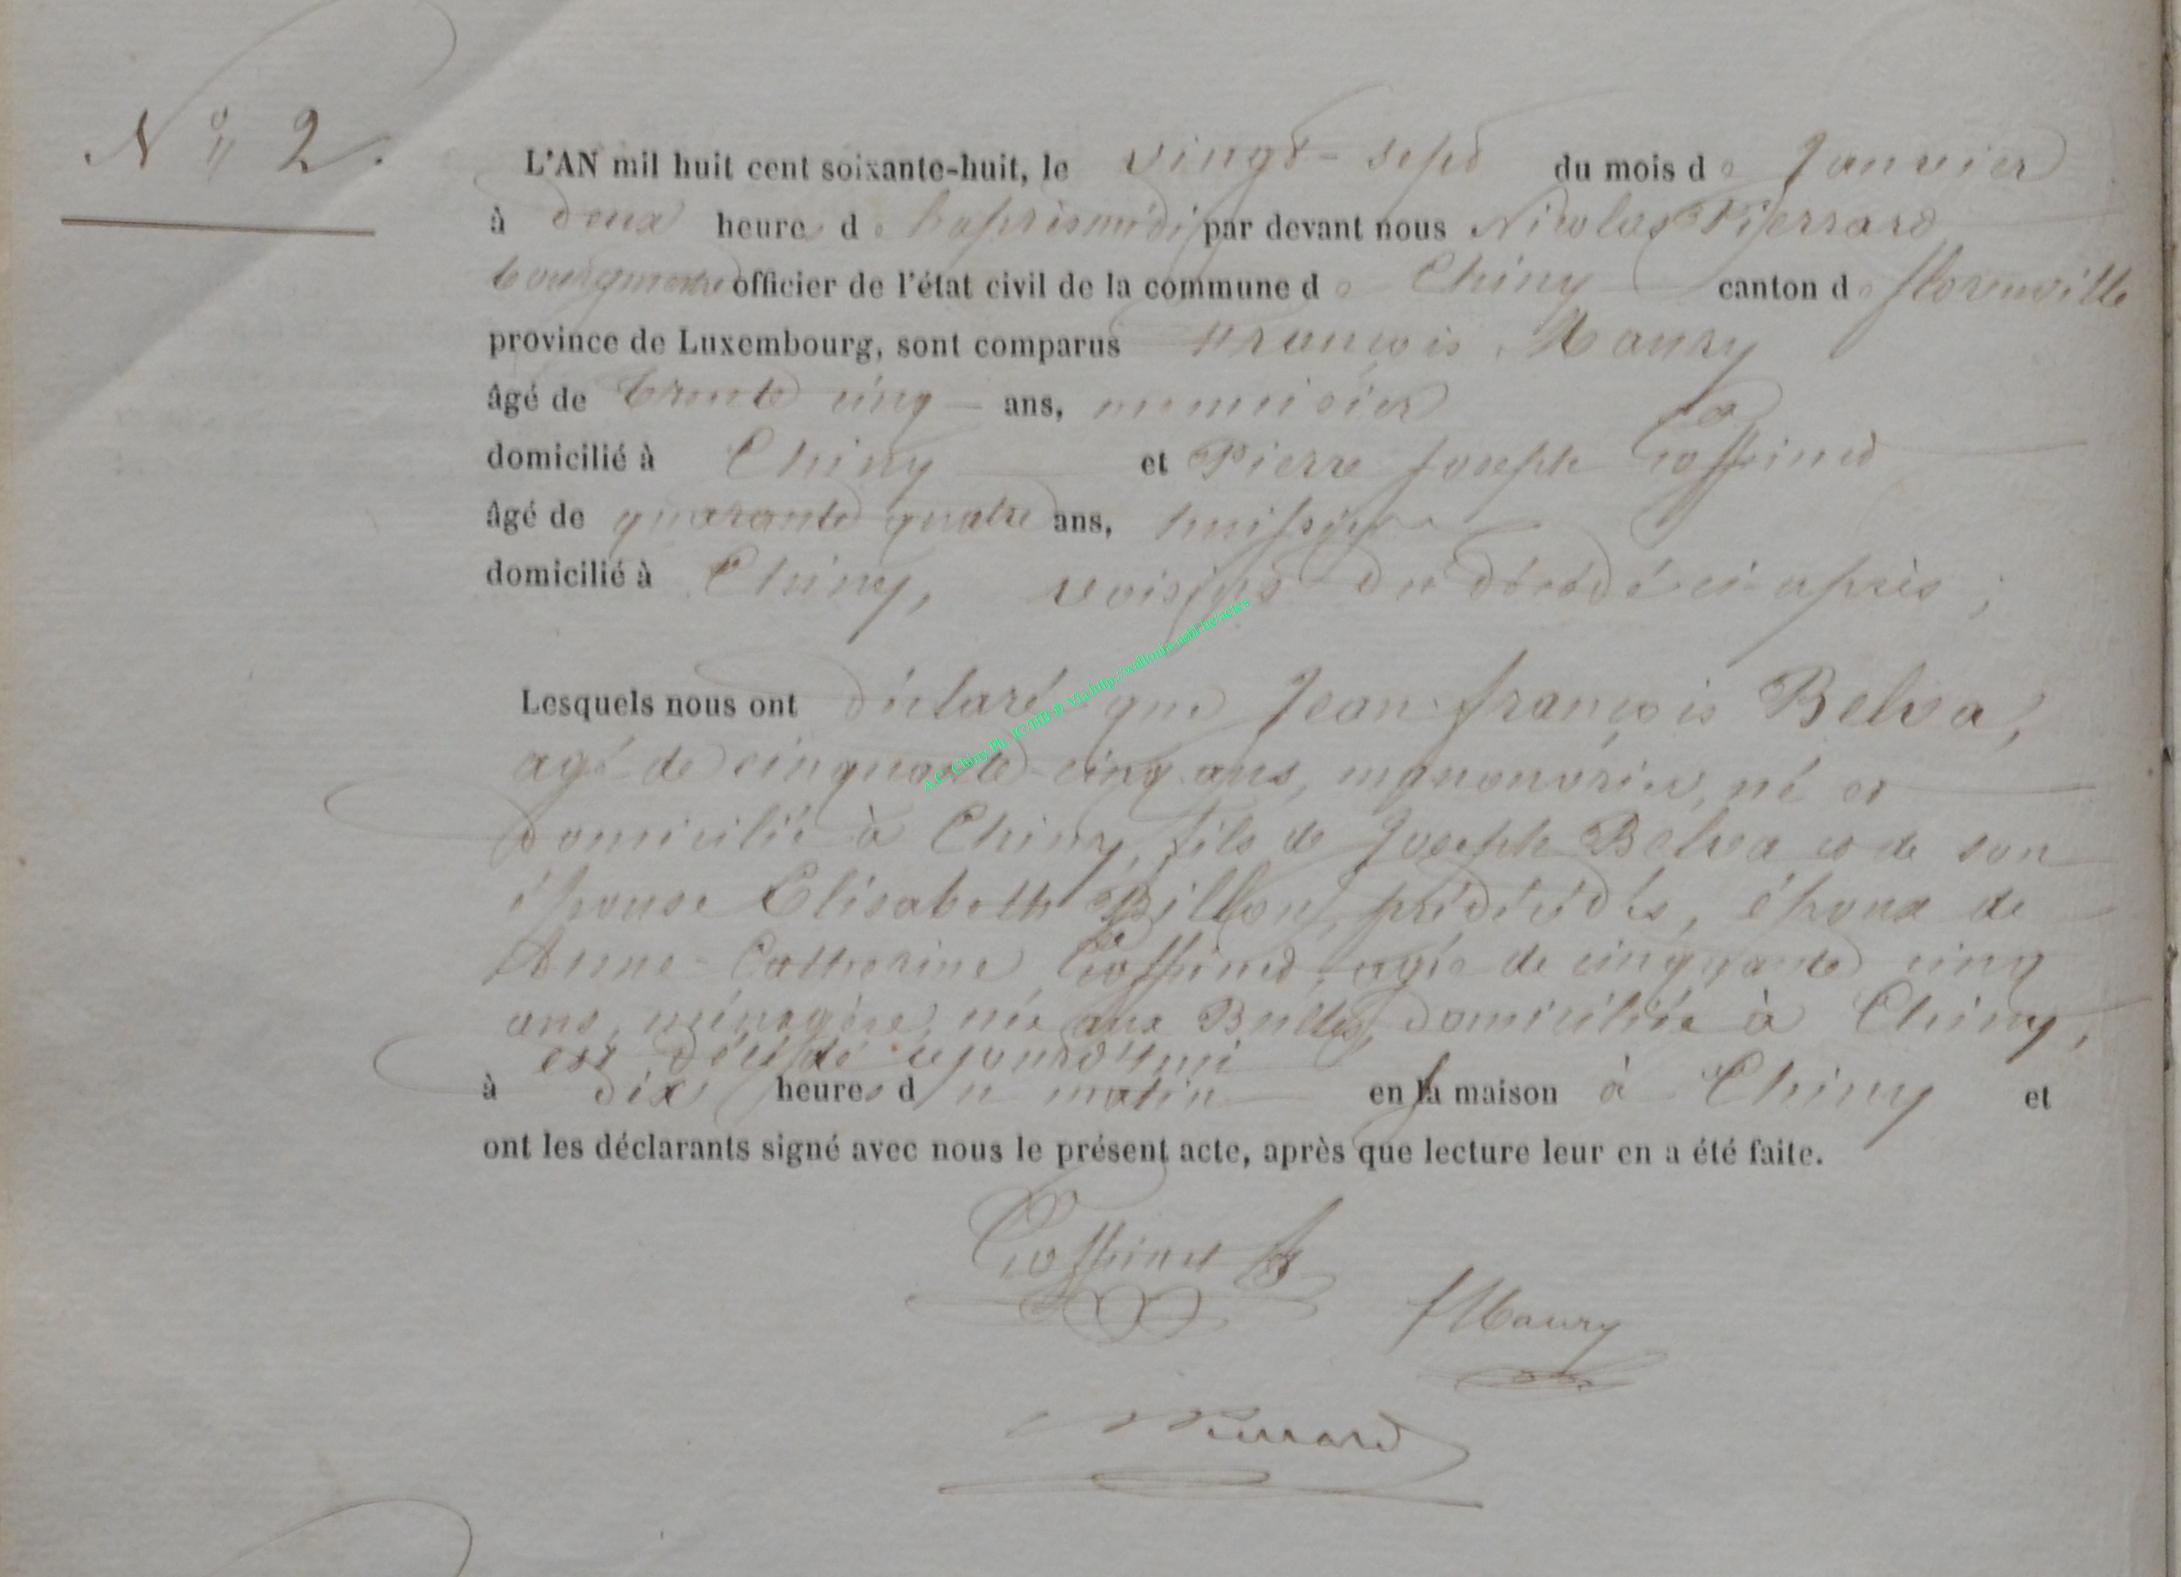 N° 2.
L'AN mil huit cent soixante-huit, le vingt-sept du mois de Janvier
à deux heures de l'après midi par devant nous Nicolas Pierrard
bourgmestre officier de l'état civil de la commune de Chiny canton de florenville
province de Luxembourg, sont comparus François Maury
âgé de trente cinq ans, menuisier
domicilié à Chiny et Pierre Joseph Goffinet
âgé de quarante quatre ans, huissier
domicilié à Chiny, voisins du décédé ci-après ;
Lesquels nous ont déclaré que Jean-françois Belva,
agé de cinquante cinq ans, manouvrier, né et
domicilié à Chiny, fils de Joseph Belva et de son
épouse Elisabeth Billon, prédécédés, époux de
Anne-Catherine Goffinet, agée de cinquante cinq
ans, ménagère, née aux Bulles, domiciliée à Chiny,
est décédé cejourd'hui
à dix heures du matin en sa maison à Chiny et
ont les déclarants signé avec nous le présent acte, après que lecture leur en a été faite.
Goffinet
f Maury
Pierrard
A.C. Chiny Ph. JC/HB © Via http://walloura-asbl.be/actes